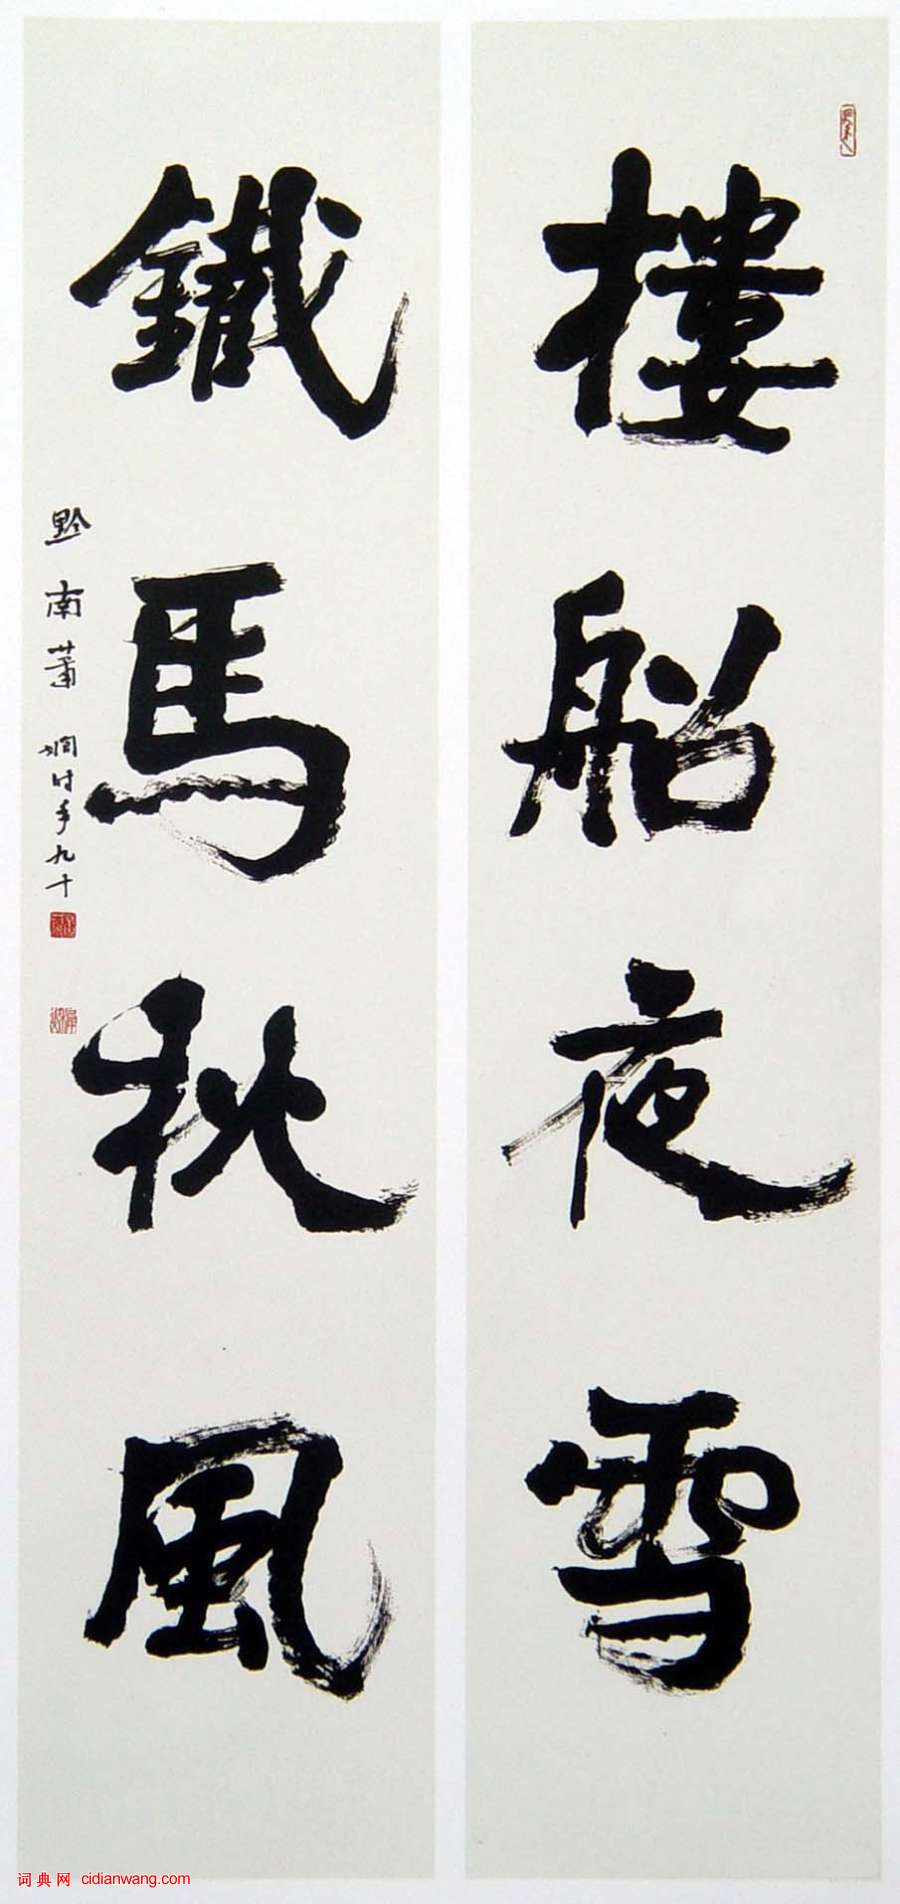 樓船夜雪
鐵馬秋風
黔南蕭嫻时年九十
词典网 cidianwang.com